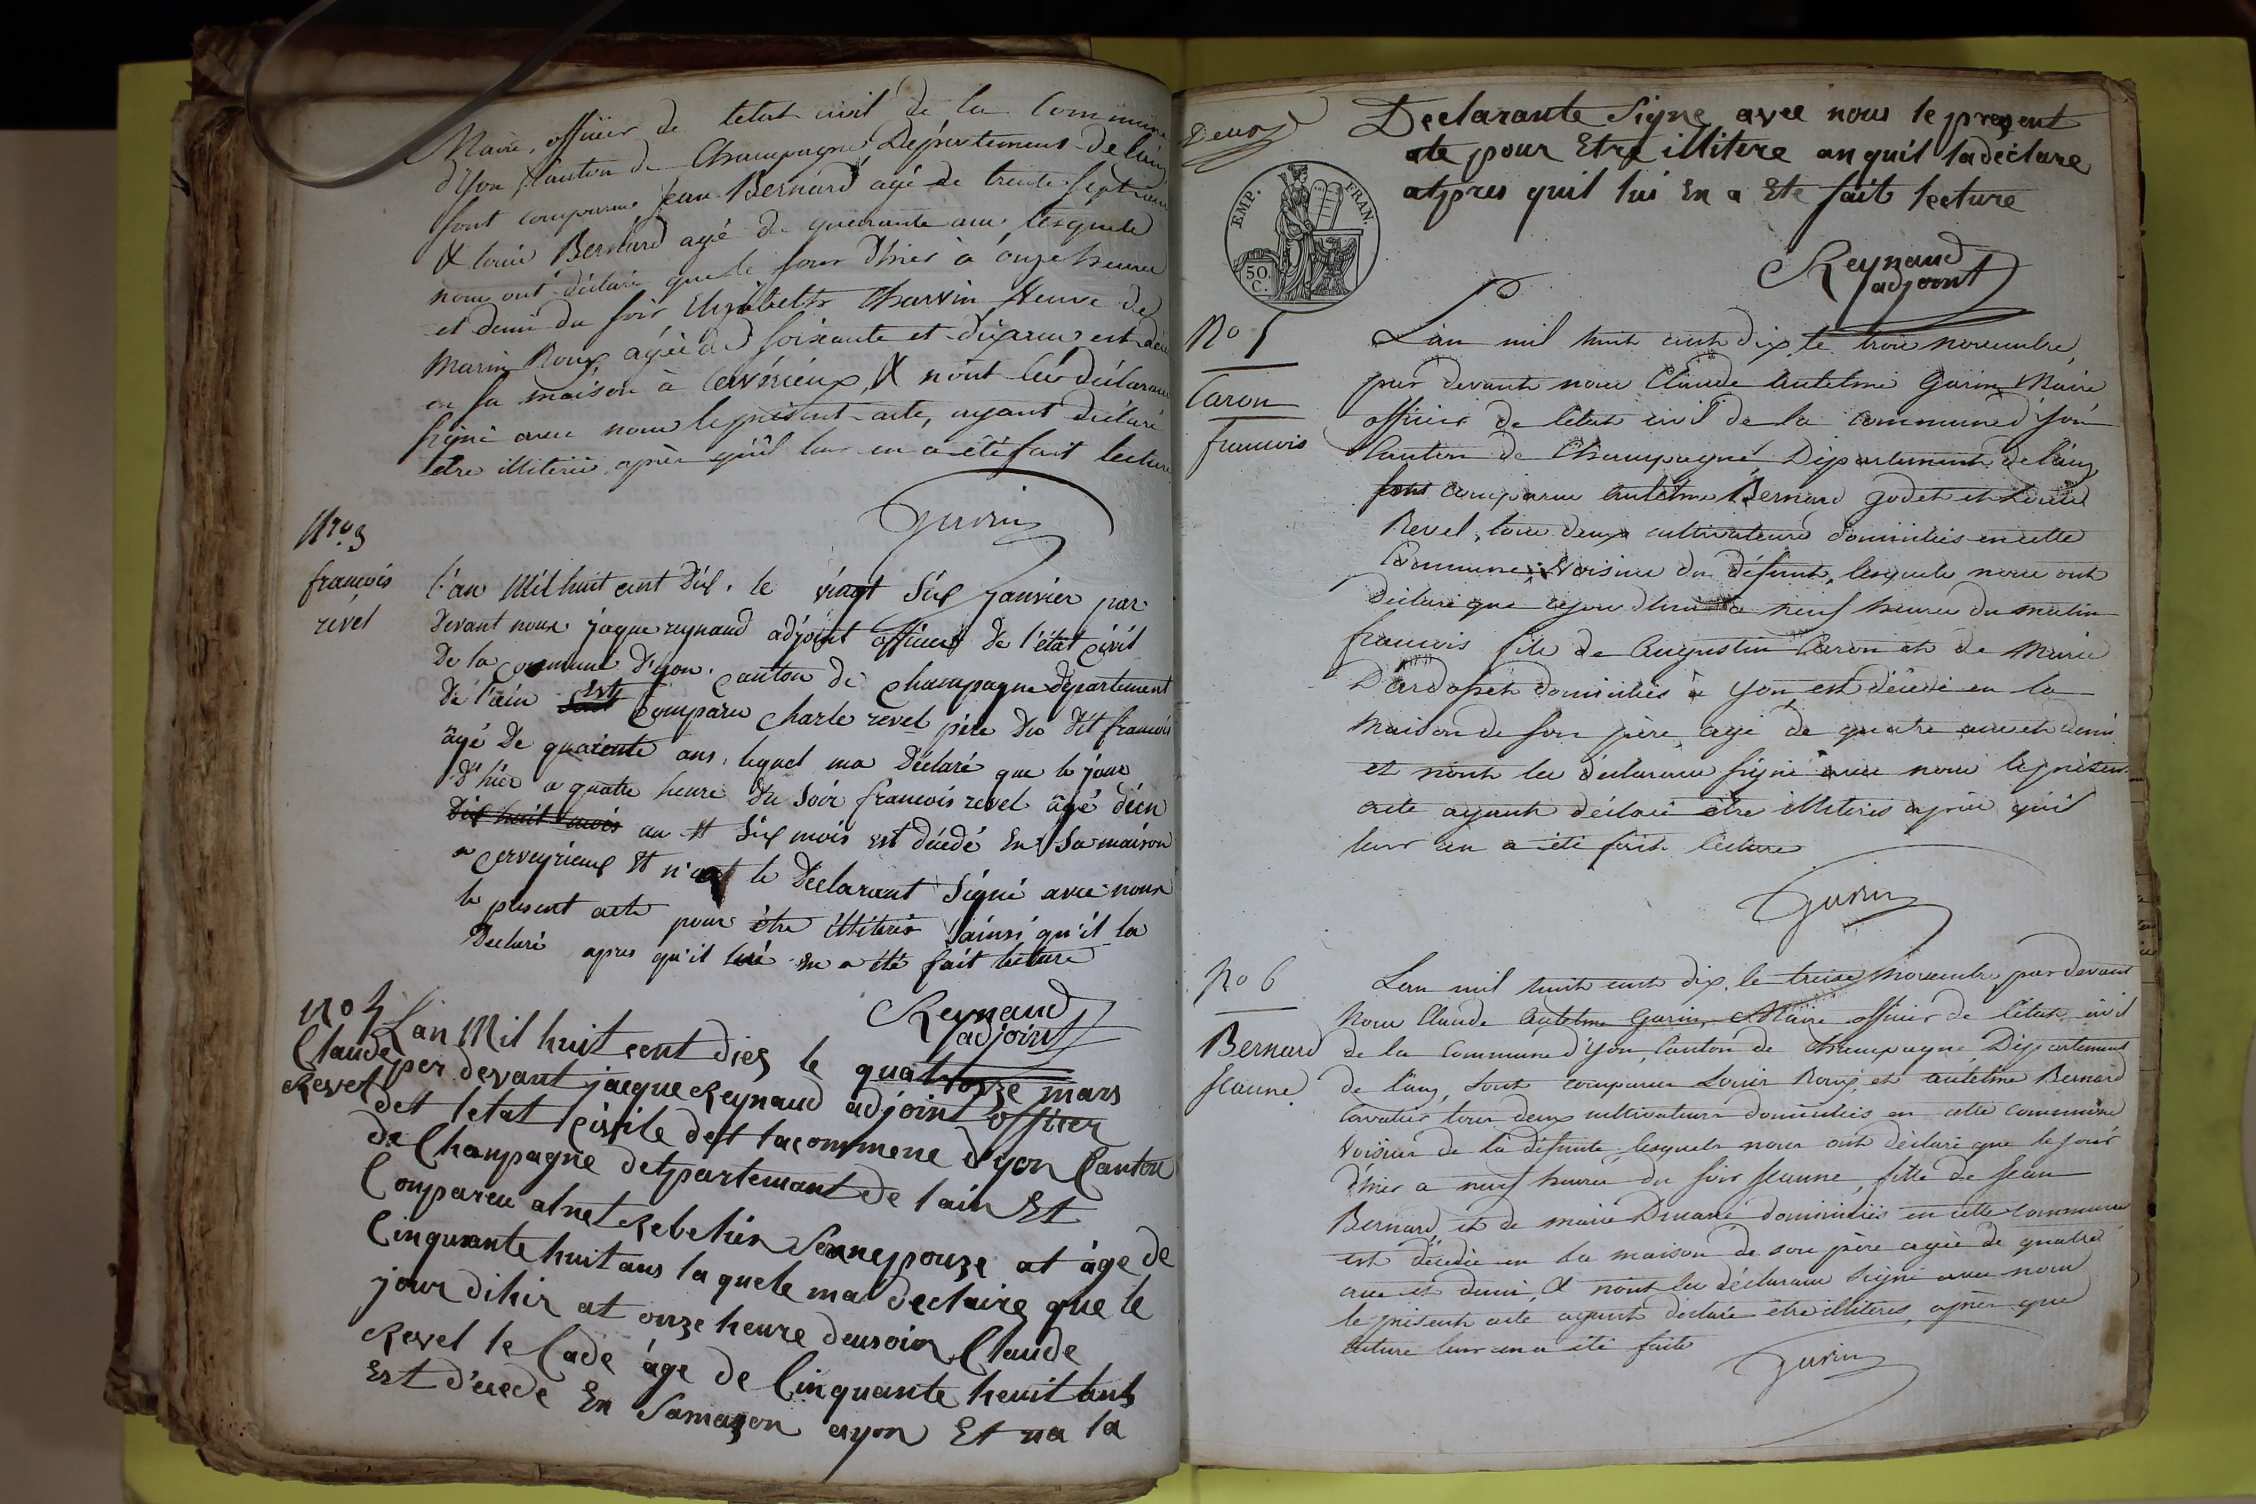 Maire, officier de letat civil de la Commune
d'Yon, Canton de Champagne Département de lain,
sont comparus Jean Bernard agé de trente sept ans
& louis Bernard agé de quarante ans lesquels
nous ont déclaré que le jour d'hier à onze heures
et demi du soir Elizabeth Charvin Veuve de
Marin Roux, agée de soixante et dix ans est décé
en sa maison à Cerveirieux, & n'ont les déclarans
signé avec nous le présent acte, ayant déclaré
être illiterés après qu'il leur en a été fait lecture
Garin
Nro 3
francois
revel
l'an Mil huit cent Dix, le vingt Six janvier par
Devant nous jaque reynaud adjoint officier De l'état Civil
De la commune D'yon, canton de champagne département
De l'ain Est Comparu Charle revel père Du Dit francois
âgé De quarente ans, lequel ma Déclaré que le jour
D'hier a quatre heure Du Soir francois revel âgé d'en
Dix huit mois an et Six mois est décédé En Sa maison
a cerveyrieux Et n'a le Déclarant Signé avec nous
le present acte pour être illiteré ainsi qu'il la
Declaré apres qu'il lui en a été fait lecture
Reynaud
adjoint
No 4
Claude
Revel
Lan Mil huit cent diez le quatorze mars
per devant jacque Reynaud adjoint offiier
det letat Civile det lacommene dyon Canton
de Champagne detpartemant de lain Et
Compareu atnet Rebehin Sonnepouze at âge de
Cinquante huit ans la quele ma declaire que le
jour dihir at onze heure deusoir Claude
Revel le Cade âge de Cinquante heuit ants
Est d'ecede En Samazon ayon Et na la
Deux
Declarante Signe avec nous le prezent
ate pour Etre illitere an quil ladeclare
atpres quil lui en a Ete fait lecture
EMP. FRAN.
50 C.
Reynaud
adjoint
No 5
Caron
francois
L'an mil huit cent dix, le trois novembre,
par devant nous Claude Antelme Garin Maire
officier de l'état civil de la commune d'Yon
Canton de Champagne Département de l'ain,
sont comparus Antelme Bernard godet et Louis
Revel, tous deux cultivateurs domiciliés en cette
Commune, Voisins du défunt, lesquels nous ont
déclaré que ajourdhuit a neuf heures du matin
francois fils de Augustin Caron et de Marie
Dardopet domiciliés à Yon est décédé en la
maison de son père, agé de quatre ans et demi
et n'ont les déclarans signé avec nous le présent
acte ayant déclaré être illiterés après qu'il
leur en a été fait lecture
Garin
No 6
Bernard
Jeanne
Lan mil huit cent dix, le treize Novembre, par devant
Nous Claude Antelme Garin, Maire officier de l'état civil
de la Commune d'Yon, Canton de Champagne, Département
de l'ain, sont comparus Louis Roux, et Antelme Bernard
Cavalier tous deux cultivateurs domiciliés en cette commune
Voisins de la défunte lesquels nous ont déclaré que le jour
d'hier a neuf heures du soir Jeanne, fille de Jean
Bernard, et de marie Ducarré domiciliés en cette commune
est décédée en la maison de son père agée de quatre
ans et demi, & n'ont les déclarans signé avec nous
le présent acte ayant déclaré être illiterés, après que
lecture leur en a été faite
Garin